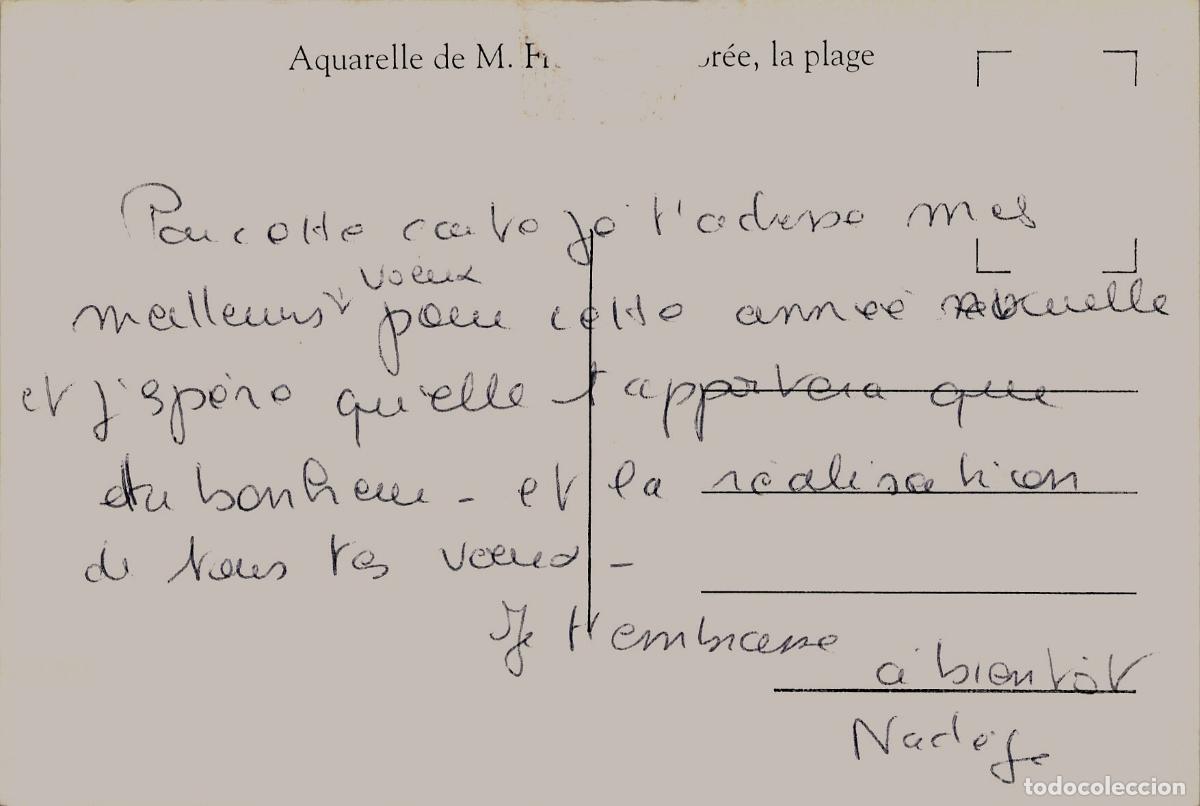 Aquarelle de M. Fr rée, la plage
Par cette carte je t'adresse mes
voeux
meilleurs pour cette année nouvelle
et j'espère qu'elle t'apportera que
du bonheur - et la réalisation
de tous tes voeux -
Je t'embrasse
à bientôt
Nadège
todocoleccion